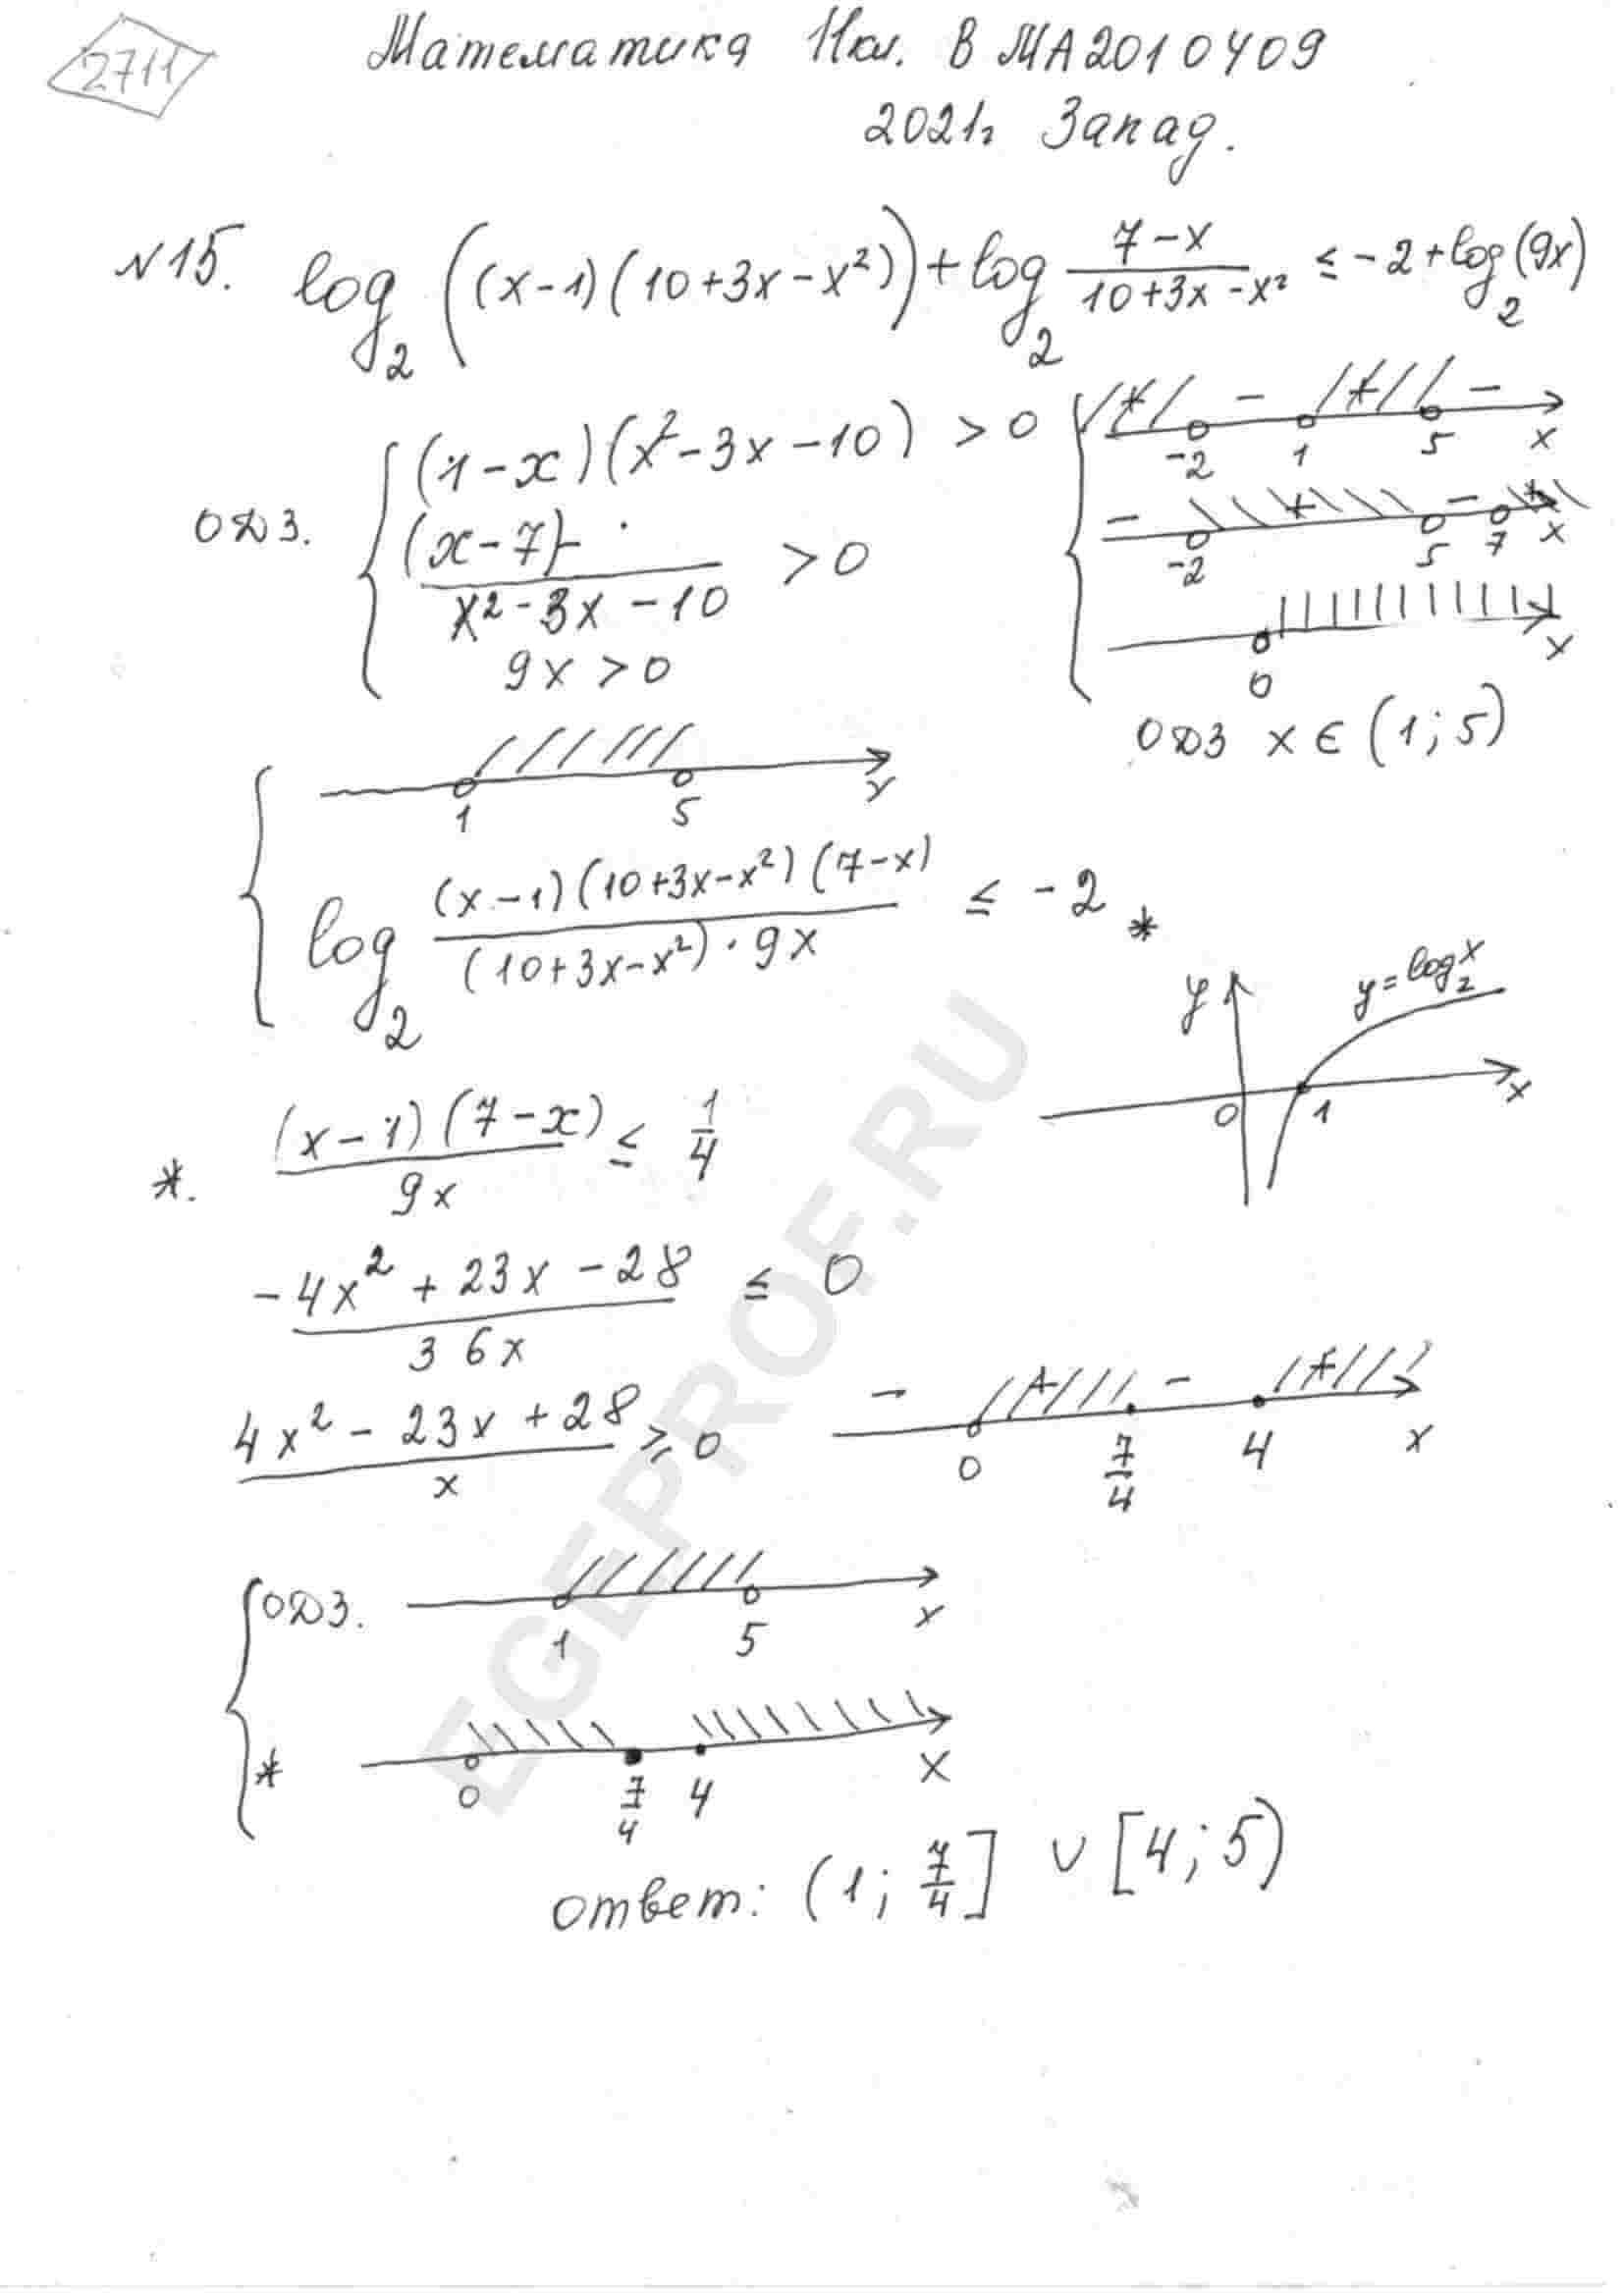 2711
Математика 11кл. ВМА2010409
2021г Запад.
№15. log₂((x-1)(10+3x-x²))+log₂ (7-x)/(10+3x-x²) ≤ -2+log₂(9x)
ОДЗ. { (1-x)(x²-3x-10) > 0
(x-7)/(x²-3x-10) > 0
9x > 0
+ - + -
-2 1 5 x
- + - +
-2 5 7 x
0 x
ОДЗ x ∈ (1; 5)
1 5 x
log₂ ((x-1)(10+3x-x²)(7-x))/((10+3x-x²)·9x) ≤ -2 *
y y=log₂x
0 1 x
*. ((x-1)(7-x))/(9x) ≤ 1/4
(-4x²+23x-28)/(36x) ≤ 0
(4x²-23x+28)/x ≥ 0
- + - +
0 7/4 4 x
{ ОДЗ.
1 5 x
*
0 7/4 4 x
ответ: (1; 7/4] ∪ [4; 5)
EGEPROF.RU